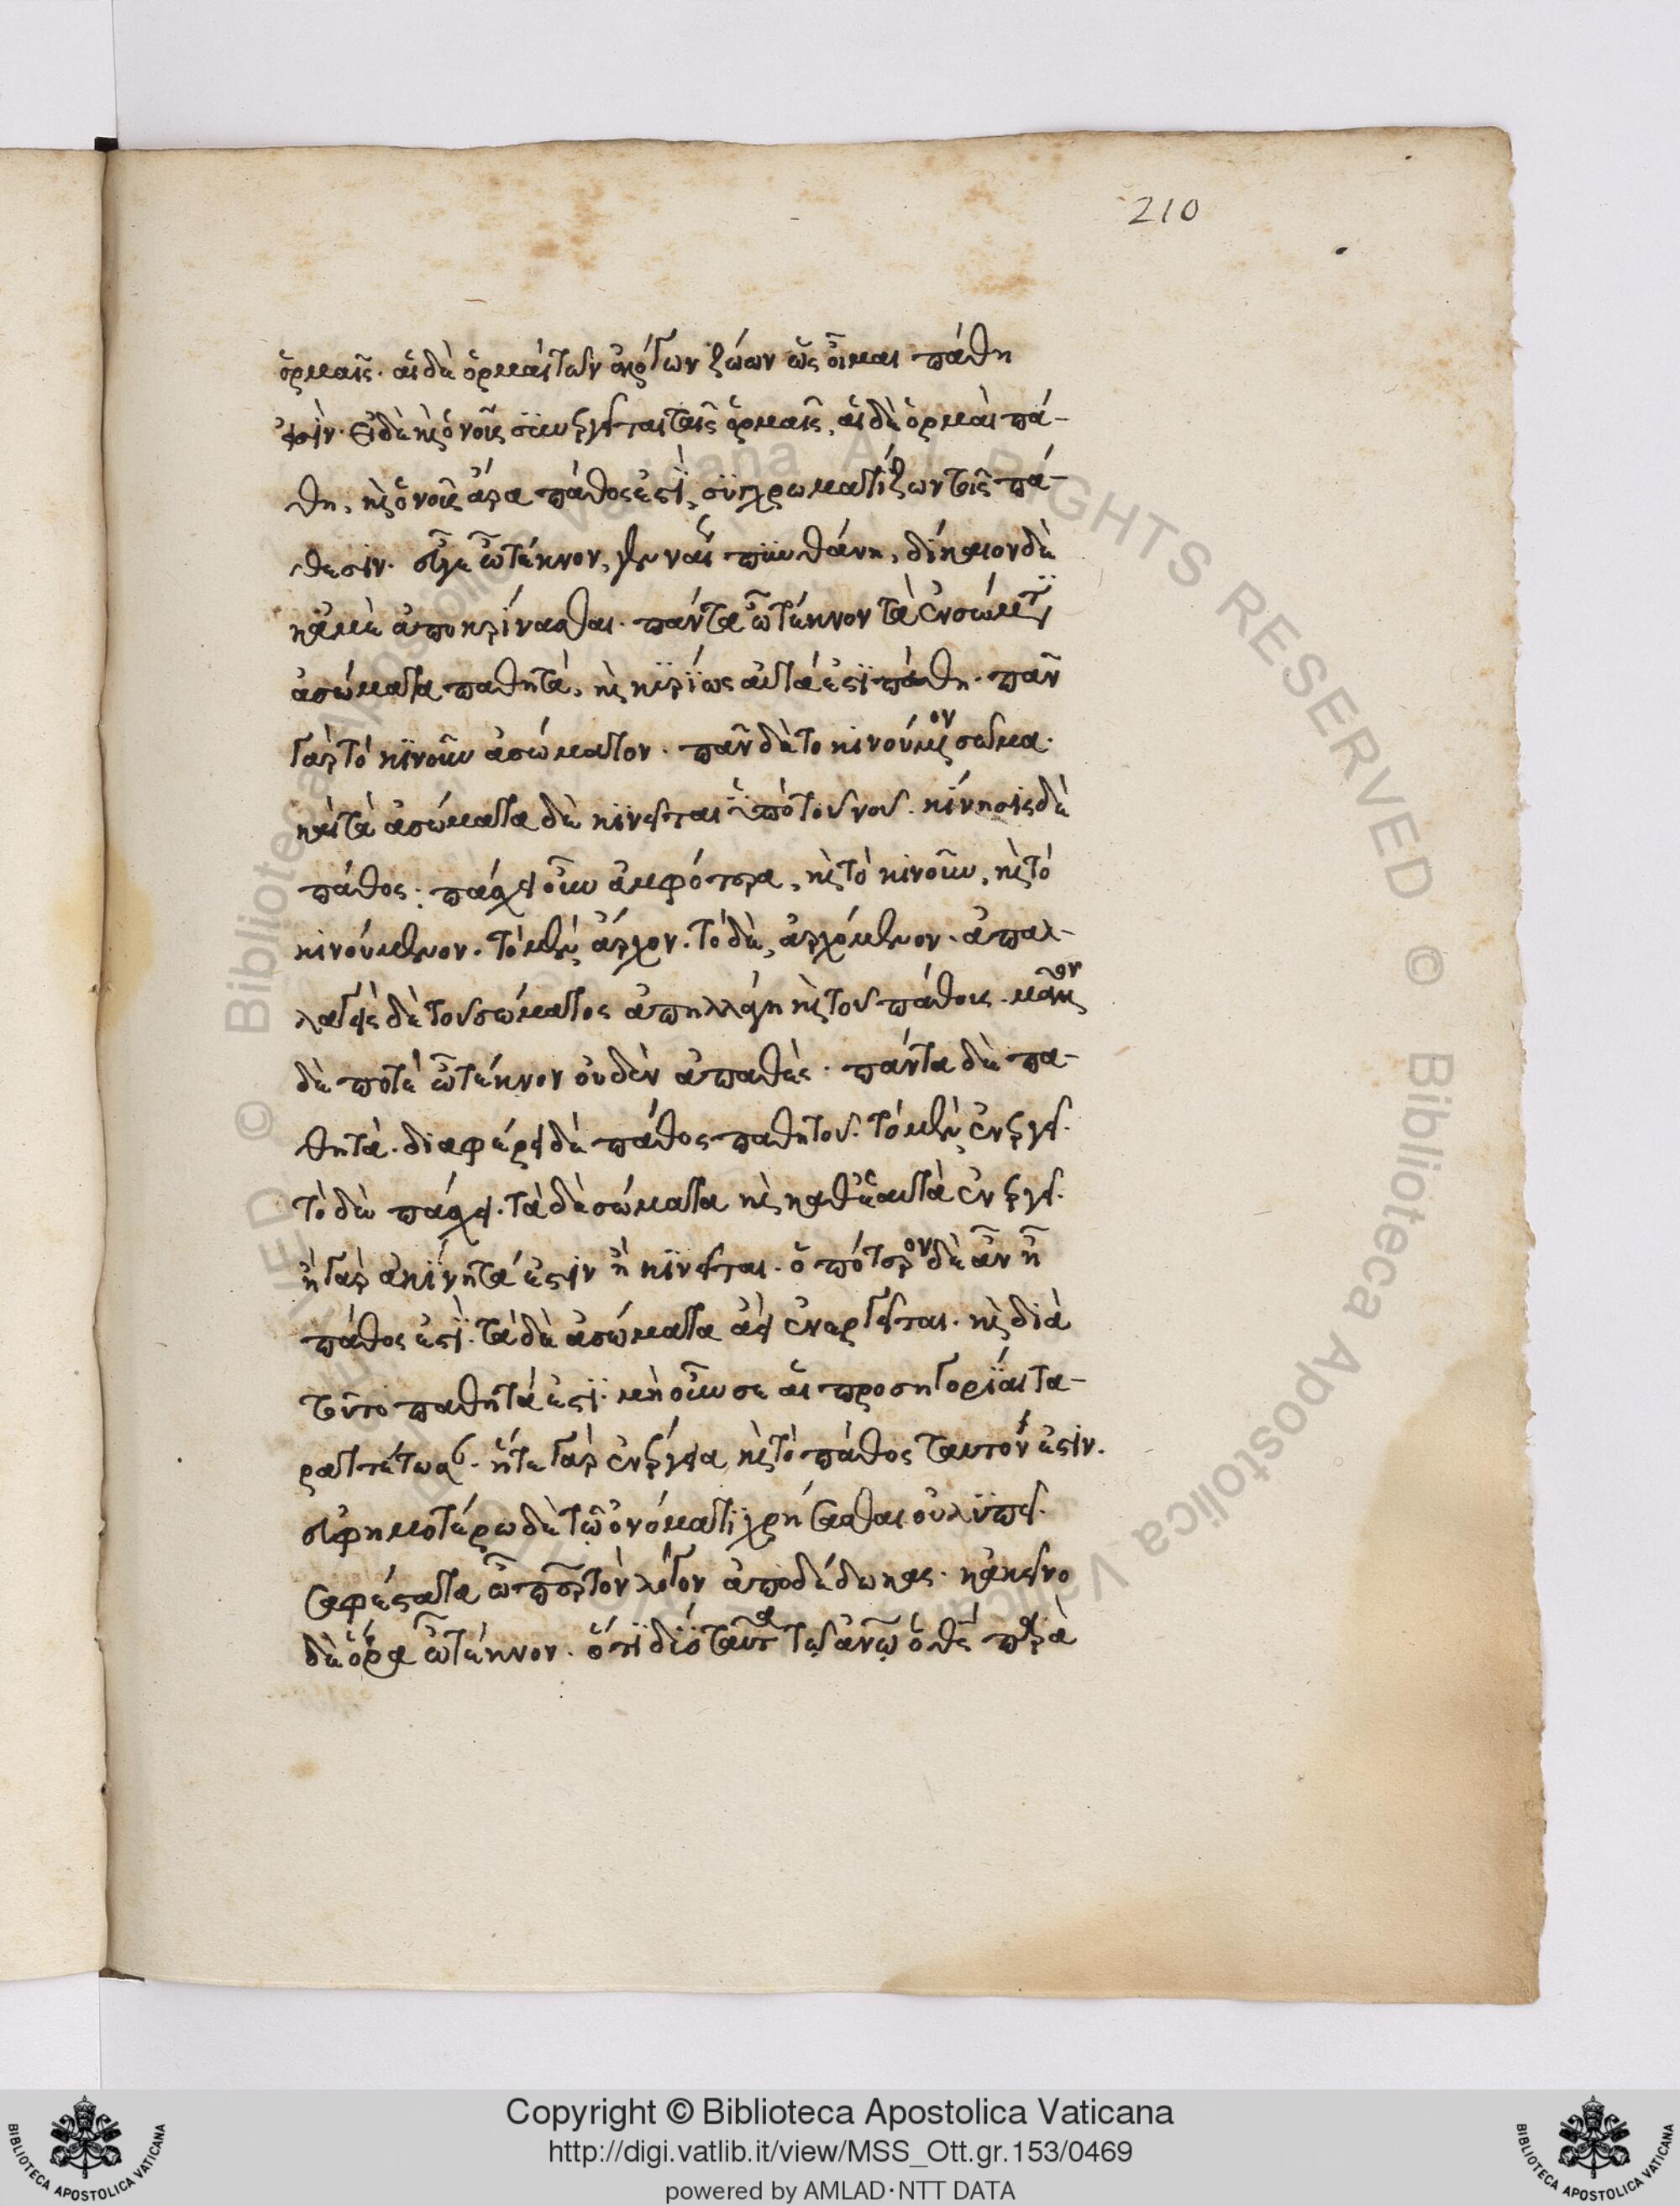 210
ὁρμαῖς. αἱ δὲ ὁρμαὶ τῶν ἀλόγων ζώων ὡς οἶμαι πάθη
εἰσίν. εἰ δὲ καὶ ὁ νοῦς συνεργεῖ ταῖς ὁρμαῖς, αἱ δὲ ὁρμαὶ πά-
θη, καὶ ὁ νοῦς ἄρα πάθος ἐστί, συγχρωματίζων τοῖς πά-
θεσιν. εὖγε ὦ τέκνον, γενναίως πυνθάνῃ, δίκαιον δὲ
κἀμὲ ἀποκρίνασθαι. πάντα ὦ τέκνον τὰ ἐν σώματι
ἀσώματα παθητά, καὶ κυρίως αὐτά ἐστι πάθη. πᾶν
γὰρ τὸ κινοῦν ἀσώματον. πᾶν δὲ τὸ κινούμενον σῶμα.
καὶ τὰ ἀσώματα δὲ κινεῖται ὑπὸ τοῦ νοῦ. κίνησις δὲ
πάθος. πάσχει οὖν ἀμφότερα, καὶ τὸ κινοῦν, καὶ τὸ
κινούμενον. τὸ μὲν ἄρχον. τὸ δὲ ἀρχόμενον. ἀπαλ-
λαγεὶς δὲ τοῦ σώματος ἀπηλλάγη καὶ τοῦ πάθους. μᾶλλον
δέ ποτε ὦ τέκνον οὐδὲν ἀπαθές. πάντα δὲ πα-
θητά. διαφέρει δὲ πάθος παθητοῦ. τὸ μὲν ἐνεργεῖ.
τὸ δὲ πάσχει. τὰ δὲ σώματα καὶ καθ' ἑαυτὰ ἐνεργεῖ.
ἢ γὰρ ἀκίνητά ἐστιν ἢ κινεῖται. ὁπότερον δὲ ἂν ᾖ
πάθος ἐστί. τὰ δὲ ἀσώματα ἀεὶ ἐνεργεῖται. καὶ διὰ
τοῦτο παθητά ἐστι. μὴ οὖν σε αἱ προσηγορίαι τα-
ραττέτωσαν. ἥτε γὰρ ἐνέργεια καὶ τὸ πάθος ταυτόν ἐστιν.
εὐφημοτέρῳ δὲ τῷ ὀνόματι χρήσασθαι οὐ λυπεῖ.
σαφέστατα ὦ πάτερ τὸν λόγον ἀποδέδωκας. κἀκεῖνο
δὲ ὅρα ὦ τέκνον. ὅτι δύο ταῦτα τῷ ἀνθρώπῳ ὁ θεὸς παρὰ
Copyright © Biblioteca Apostolica Vaticana
http://digi.vatlib.it/view/MSS_Ott.gr.153/0469
powered by AMLAD·NTT DATA